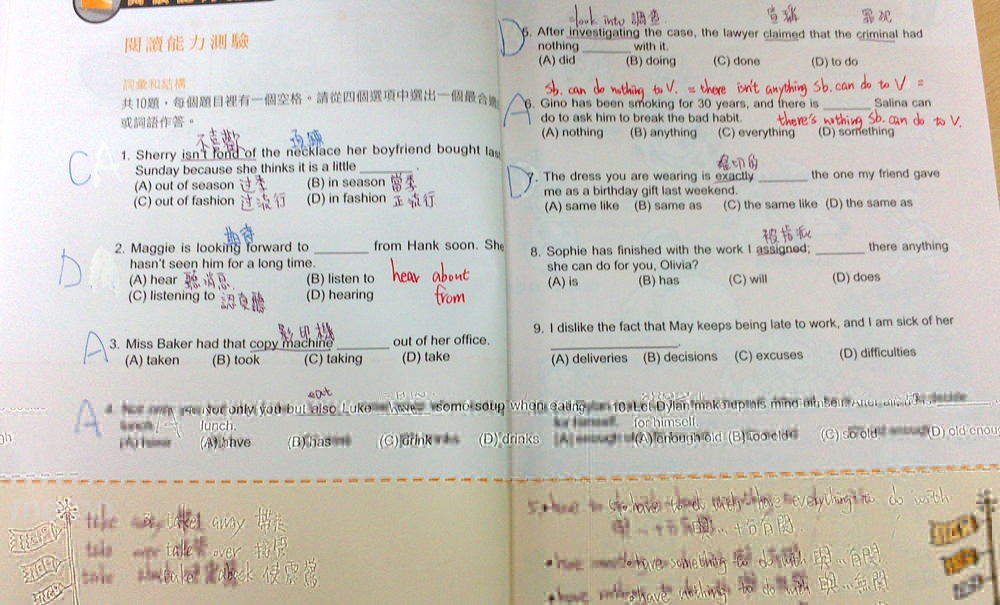 閱讀能力測驗
詞彙和結構
共10題，每個題目裡有一個空格。請從四個選項中選出一個最合適
或詞語作答。
不喜歡
項鍊
C
1. Sherry isn't fond of the necklace her boyfriend bought las
Sunday because she thinks it is a little ______.
(A) out of season 过季 (B) in season 當季
(C) out of fashion 过流行 (D) in fashion 正流行
期待
D
2. Maggie is looking forward to ______ from Hank soon. She
hasn't seen him for a long time.
(A) hear 聽消息 (B) listen to
(C) listening to 認真聽 (D) hearing
hear about
from
影印機
A
3. Miss Baker had that copy machine ______ out of her office.
(A) taken (B) took (C) taking (D) take
A
only you but also Luke some soup when eating
lunch.
(A) have (B) has (C) drink (D) drinks
away
over
look into 調查
宣稱
罪犯
D
5. After investigating the case, the lawyer claimed that the criminal had
nothing ______ with it.
(A) did (B) doing (C) done (D) to do
sb. can do nothing to V. = there isn't anything sb. can do to V =
A
6. Gino has been smoking for 30 years, and there is ______ Salina can
do to ask him to break the bad habit.
there's nothing sb. can do to V.
(A) nothing (B) anything (C) everything (D) something
確切的
D
7. The dress you are wearing is exactly ______ the one my friend gave
me as a birthday gift last weekend.
(A) same like (B) same as (C) the same like (D) the same as
8. Sophie has finished with the work I assigned; ______ there anything
she can do for you, Olivia?
(A) is (B) has (C) will (D) does
9. I dislike the fact that May keeps being late to work, and I am sick of her
______.
(A) deliveries (B) decisions (C) excuses (D) difficulties
10. Let Dylan make up his mind
for himself.
(A) enough old (B) too old (C) so old (D) old enou
everything to do with
something to do with 與…有關
have nothing to do with 與…無關